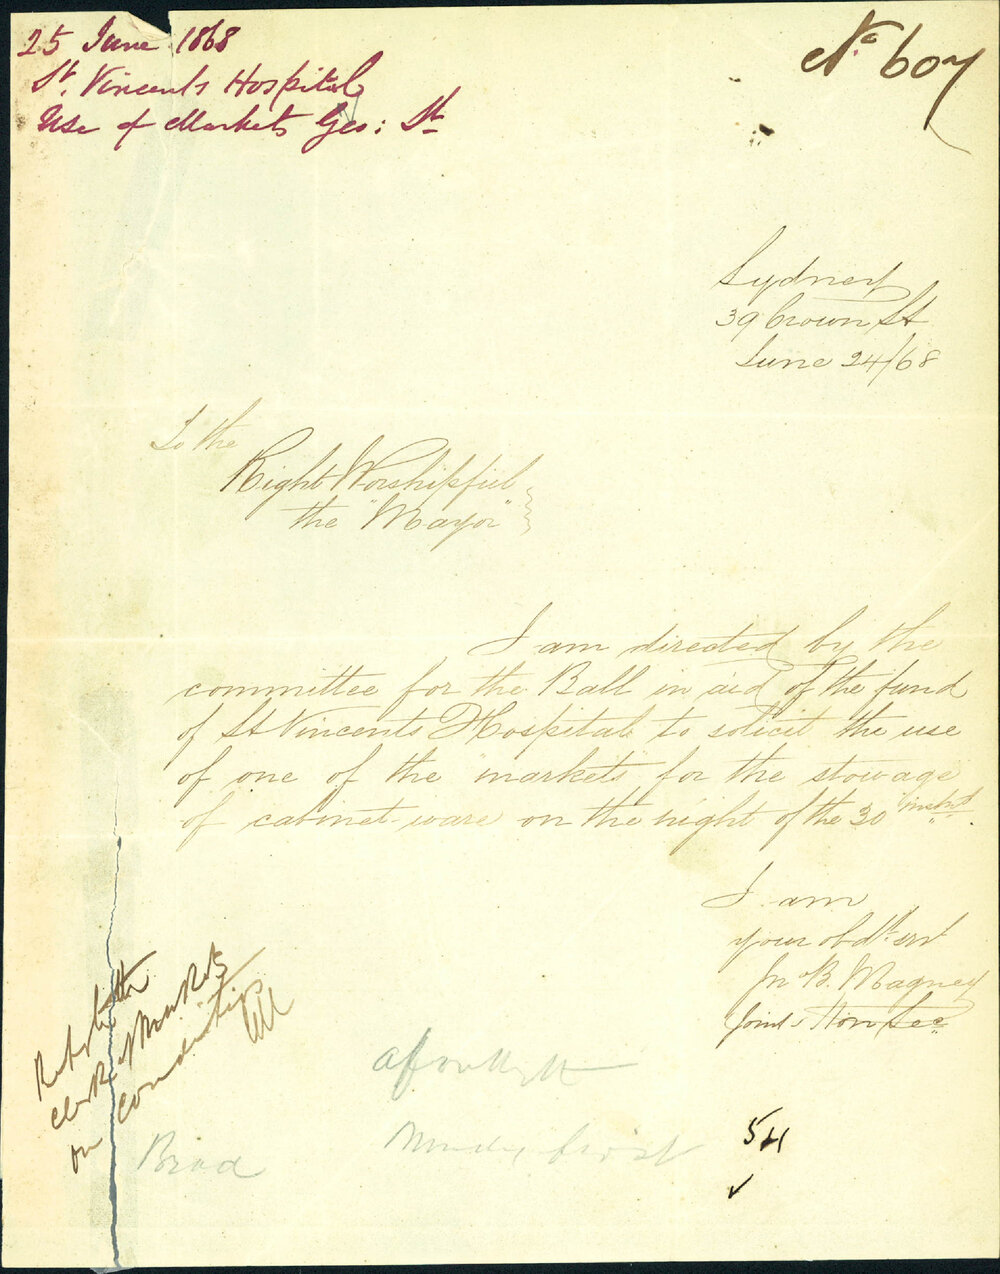 25 June 1868
St. Vincents Hospital
Use of Markets Geo: St
No 607
Sydney
39 Crown St
June 24/68
To the
Right Worshipful
the "Mayor"
I am directed by the
committee for the Ball in aid of the fund
of St Vincents Hospital to solicit the use
of one of the "markets" for the stowage
of cabinet-ware on the night of the 30 inst.
I am
your obdt. svt
Jn B. Magney
Joint Hon Sec
letter
Clerk of Markets
on condition
Read
54